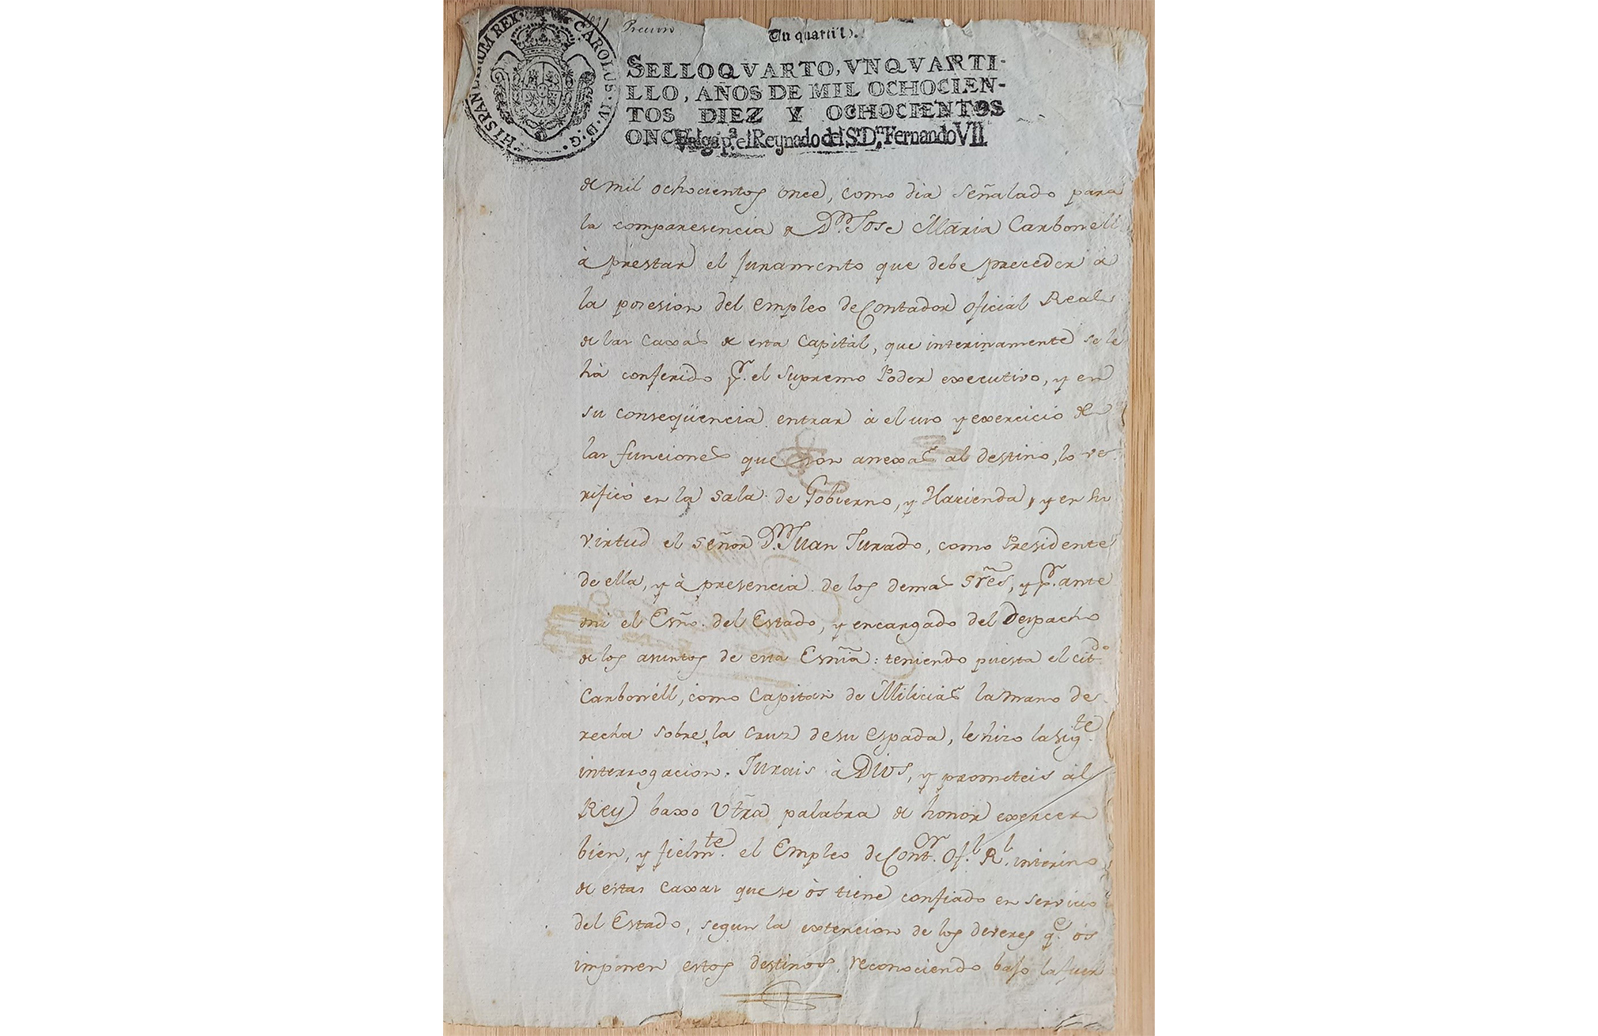 HISPANIARUM REX
CAROLUS·IV·D·G·
1811
Un quartil.º
SELLO QVARTO, VN QVARTI-
LLO, AÑOS DE MIL OCHOCIEN-
TOS DIEZ Y OCHOCIENTOS
ONCE
Valga pª. el Reynado del Sr. Dn. Fernando VII
de mil ochocientos once, como dia señalado para
la comparesencia de Dn. Jose Maria Carbonell
à prestar el juramento que debe preceder à
la posesion del empleo de Contador oficial Real
de las caxas de esta Capitàl, que interinamente se le
hà conferido pr. el Supremo Poder executivo, y en
su conseqüencia entrar à el uso y exercicio de
las funciones que son anexas al destino, lo ve-
rificò en la sala de Gobierno, y Hacienda, y en su
virtud el señor Dn. Juan Jurado, como Presidente
de ella, y à presencia de los demas Sres, y pr. ante
mi el Esno. del Estado, y encargado del Despacho
de los asuntos de esta Esnia: teniendo puesta el citdo.
Carbonèll, como Capitan de Milicias la mano de-
recha sobre la cruz de su espada, le hizo la sigte.
interrogacion. Jurais à Dios, y prometeis àl
Rey baxo Vtra palabra de honor exercer
bien, y fielmte. el Empleo de Contor. Ofl. Rl. interino
de estas caxas que se òs tiene confiado en servicio
del Estado, segun la extencion de los deveres qe. òs
imponen estos destinos, reconociendo bajo la